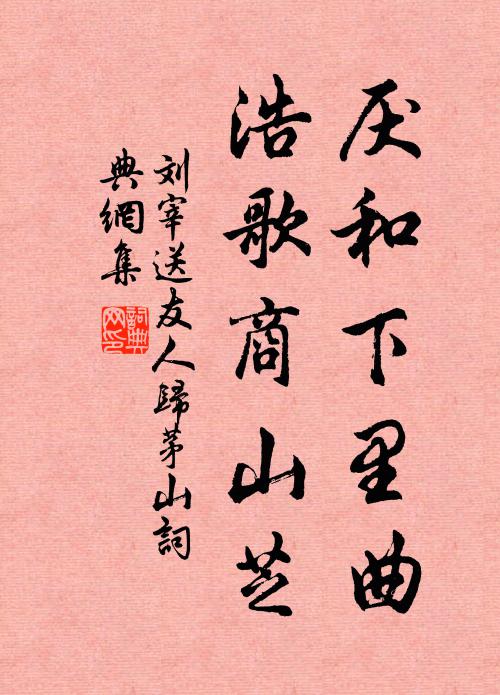 厌和下里曲
浩歌商山芝
刘宰送友人歸茅山詞
典網集
詞典网印